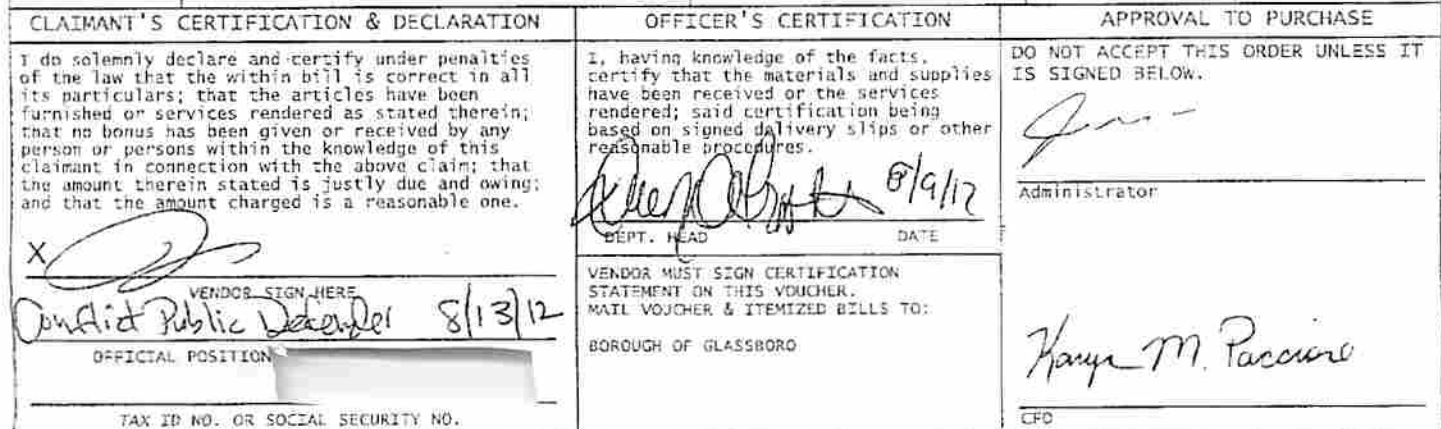 CLAIMANT'S CERTIFICATION & DECLARATION
I do solemnly declare and certify under penalties
of the law that the within bill is correct in all
its particulars; that the articles have been
furnished or services rendered as stated therein;
that no bonus has been given or received by any
person or persons within the knowledge of this
claimant in connection with the above claim; that
the amount therein stated is justly due and owing;
and that the amount charged is a reasonable one.
X
VENDOR SIGN HERE
Conflict Public Defender 8/13/12
OFFICIAL POSITION
TAX ID NO. OR SOCIAL SECURITY NO.
OFFICER'S CERTIFICATION
I, having knowledge of the facts,
certify that the materials and supplies
have been received or the services
rendered; said certification being
based on signed delivery slips or other
reasonable procedures.
8/9/12
DEPT. HEAD DATE
VENDOR MUST SIGN CERTIFICATION
STATEMENT ON THIS VOUCHER.
MAIL VOUCHER & ITEMIZED BILLS TO:
BOROUGH OF GLASSBORO
APPROVAL TO PURCHASE
DO NOT ACCEPT THIS ORDER UNLESS IT
IS SIGNED BELOW.
Administrator
Karyn M. Paccione
CFO